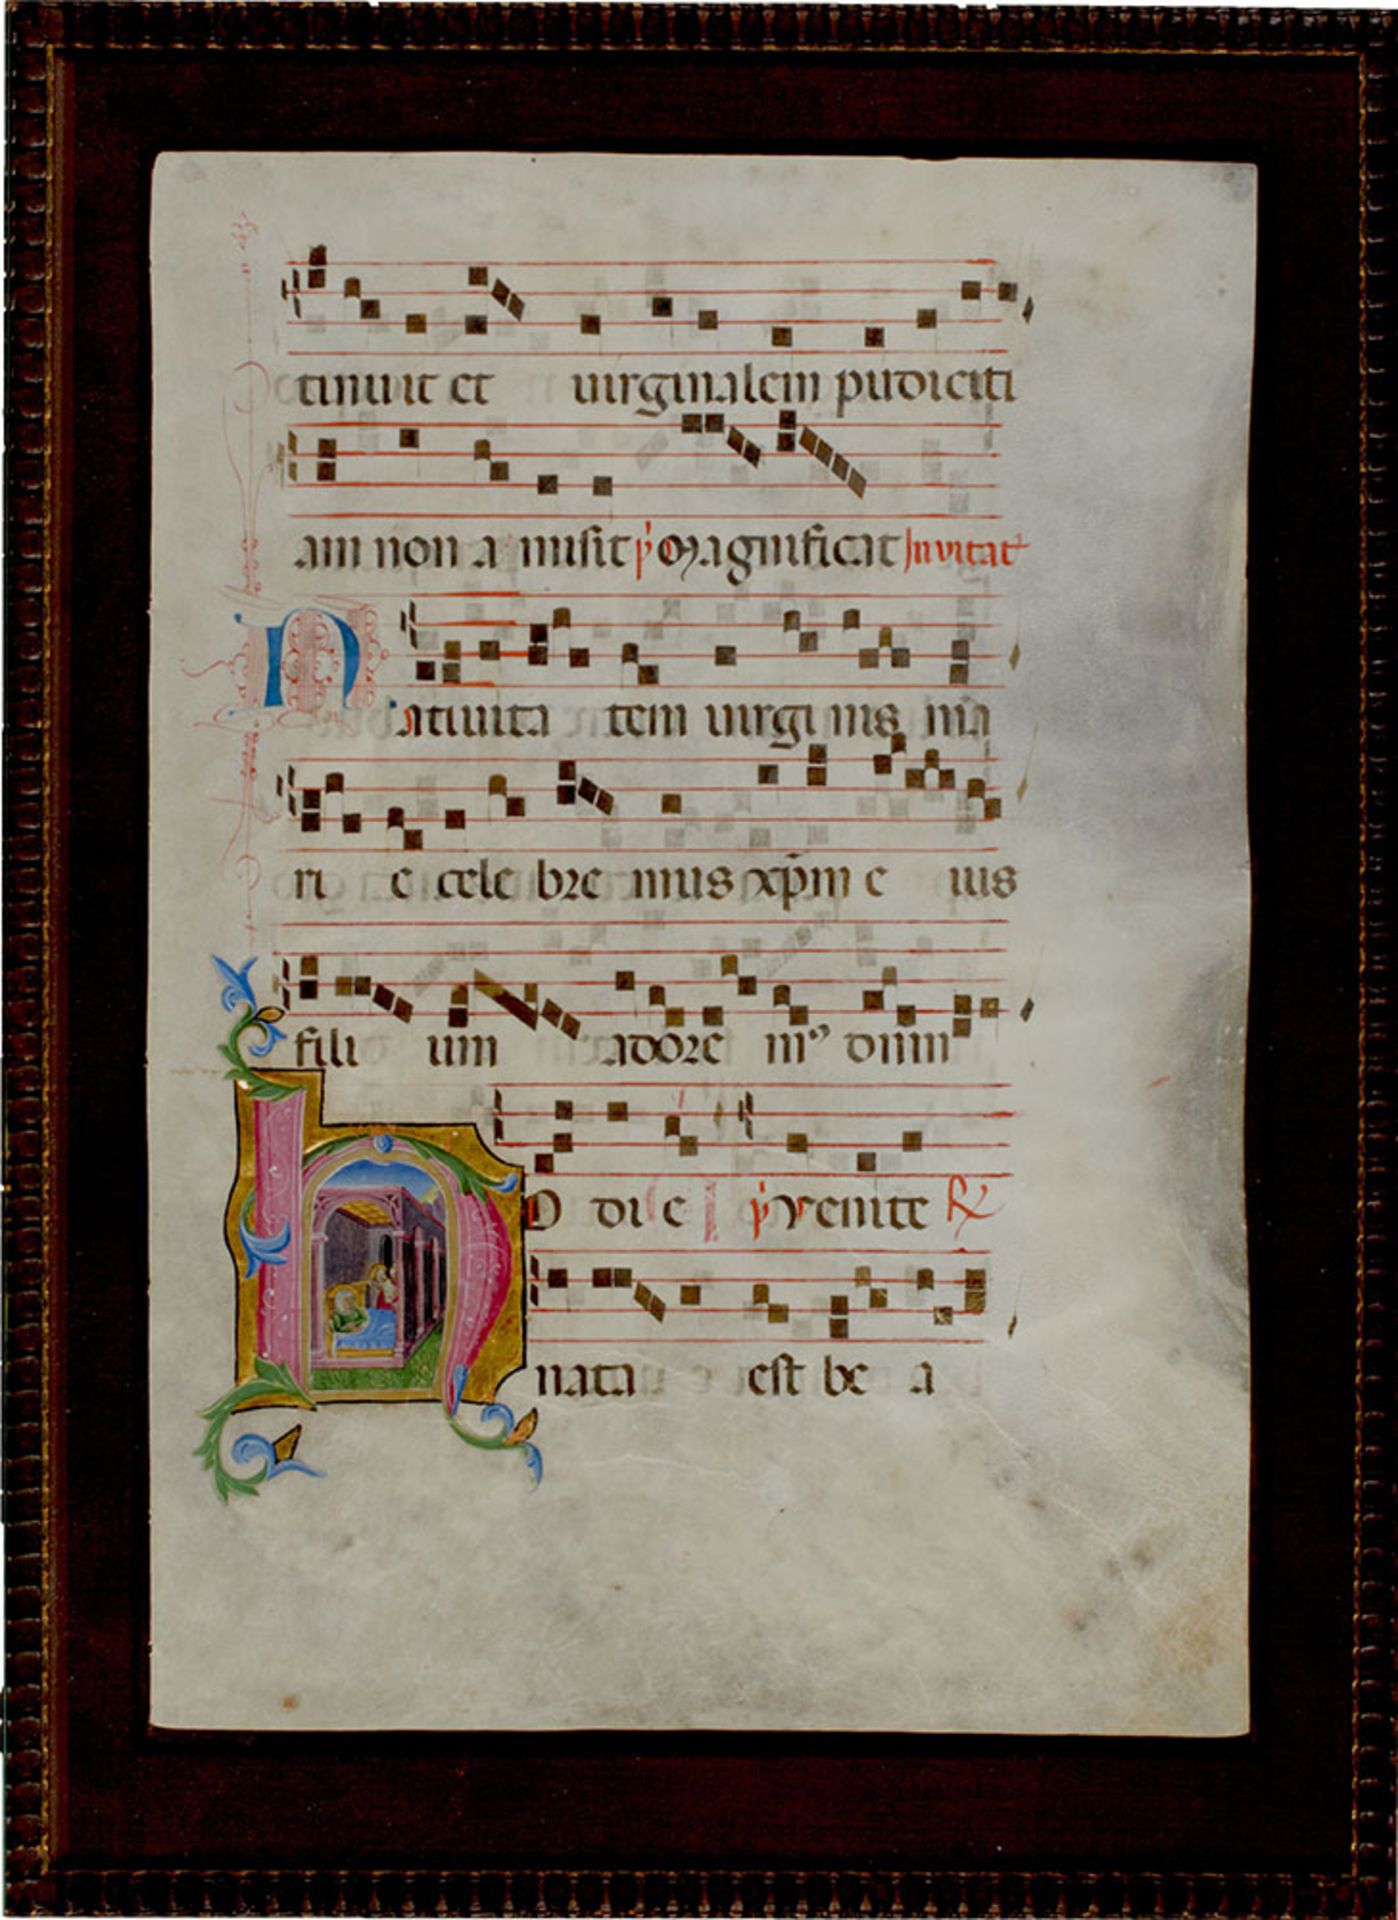 tinuit et uirginalem pudiciti
am non a misit p̄ Magnificat Inuitat
Natiuita tem uirgi nis ma
ri e cele bre mus xp̄m e ius
fili um adore m᷒ dn̄m
HO di e p̄ Venite ℟
nata est be a